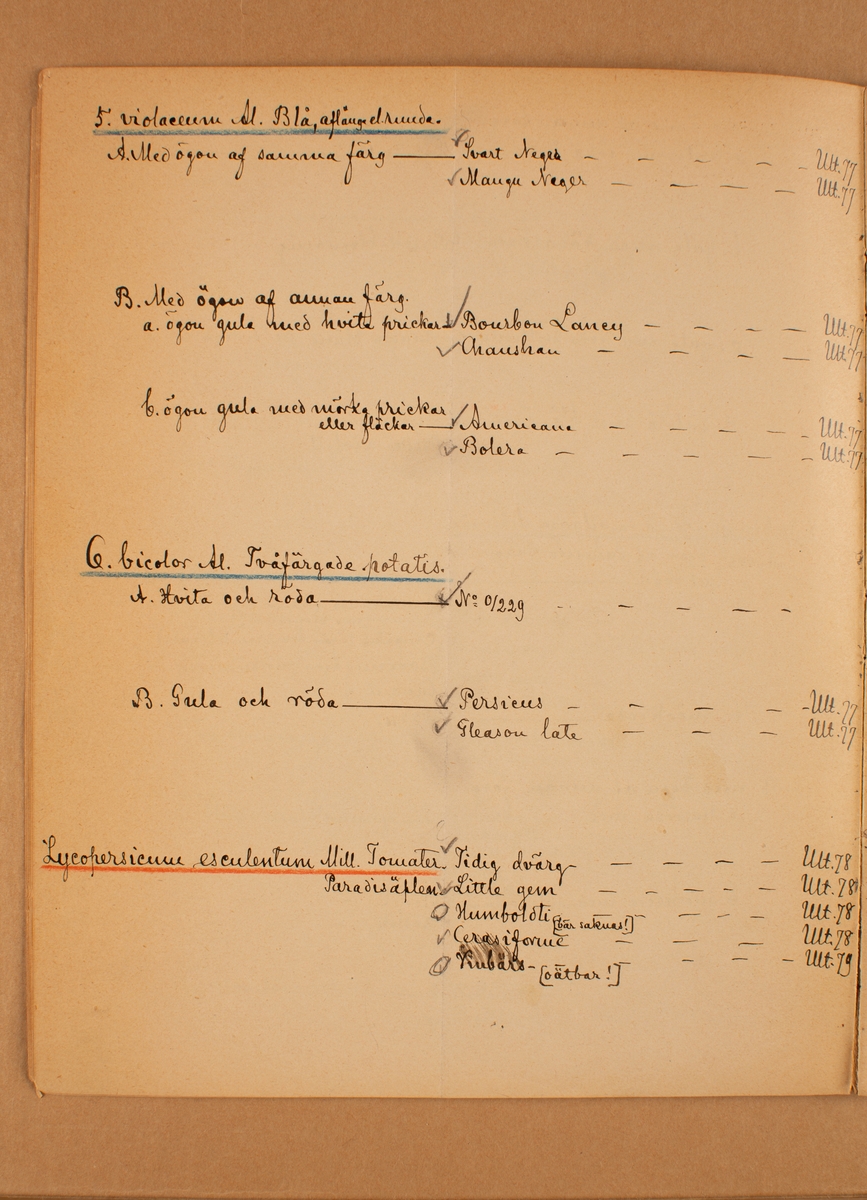 5. violaceum Al. Blå, aflånga el. runda.
A. Med ögon af samma färg — Svart Neger — — — — — Utt. 77
Mangu Neger — — — — Utt. 77
B. Med ögon af annan färg.
a. ögon gula med hvita prickar — Bourbon Lancy — — — — Utt. 77
Chaushau — — — — Utt. 77
b. ögon gula med mörka prickar
eller fläckar — Americana — — — — — Utt. 77
Bolera — — — — — Utt. 77
6. bicolor Al. Tvåfärgade potatis.
A. Hvita och röda — No 0/229 — — — —
B. Gula och röda — Persicus — — — — — Utt. 77
Gleason late — — — Utt. 77
Lycopersicum esculentum Mill. Tomater. Tidig dvärg — — — — Utt. 78
Paradisäplen. Little gem — — — — — Utt. 78
Humboldti [bär saknas!] — — — — Utt. 78
Cerasiforme — — — Utt. 78
[oätbar!] — — — Utt. 79